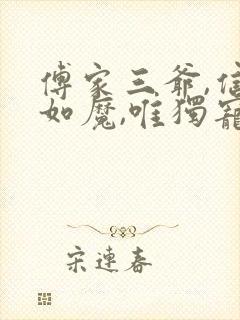 傅家三爷,
如魔,唯獨寵
宋連春